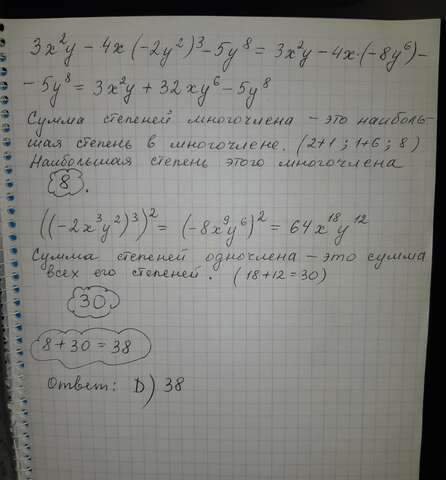 3x²y - 4x(-2y²)³ - 5y⁸ = 3x²y - 4x·(-8y⁶) -
- 5y⁸ = 3x²y + 32xy⁶ - 5y⁸
Сумма степеней многочлена - это наиболь-
шая степень в многочлене. (2+1; 1+6; 8)
Наибольшая степень этого многочлена
8.
((-2x³y²)³)² = (-8x⁹y⁶)² = 64x¹⁸y¹²
Сумма степеней одночлена - это сумма
всех его степеней. (18+12=30)
30
8+30=38
Ответ: D) 38